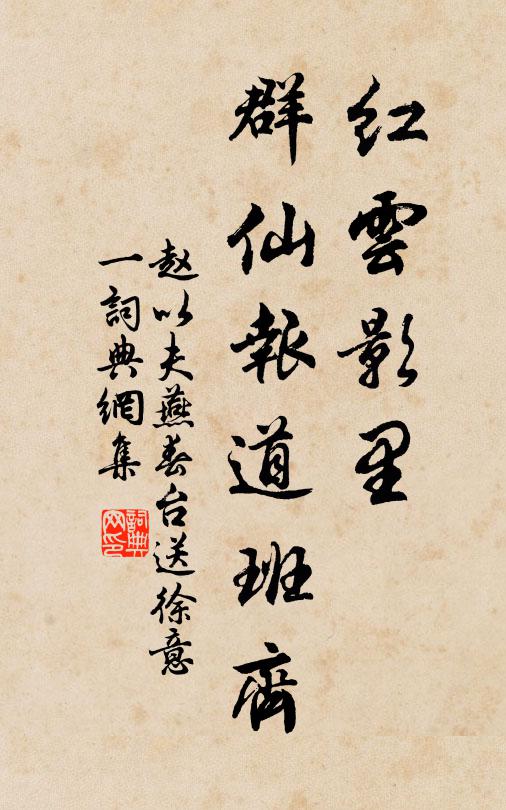 紅雲影里
群仙報道班齊
赵以夫燕春台送徐意
一詞典網集
詞典
网印